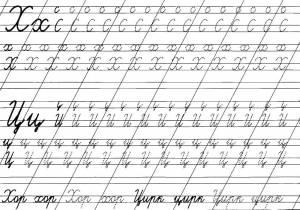 Х х с с с с с с с с с с с с
С С С С С С С С С С С С
х х х х х х х х х х х х х х
Х Х Х Х Х Х Х Х Х Х Х Х
Ц ц ц ц ц ц ц ц ц ц ц ц ц
Ц Ц Ц Ц Ц Ц Ц Ц Ц Ц Ц
ц ц ц ц ц ц ц ц ц ц ц ц ц
Ц Ц Ц Ц Ц Ц Ц Ц Ц Ц Ц Ц
Хор хор Хор хор Цирк цирк Цирк цирк